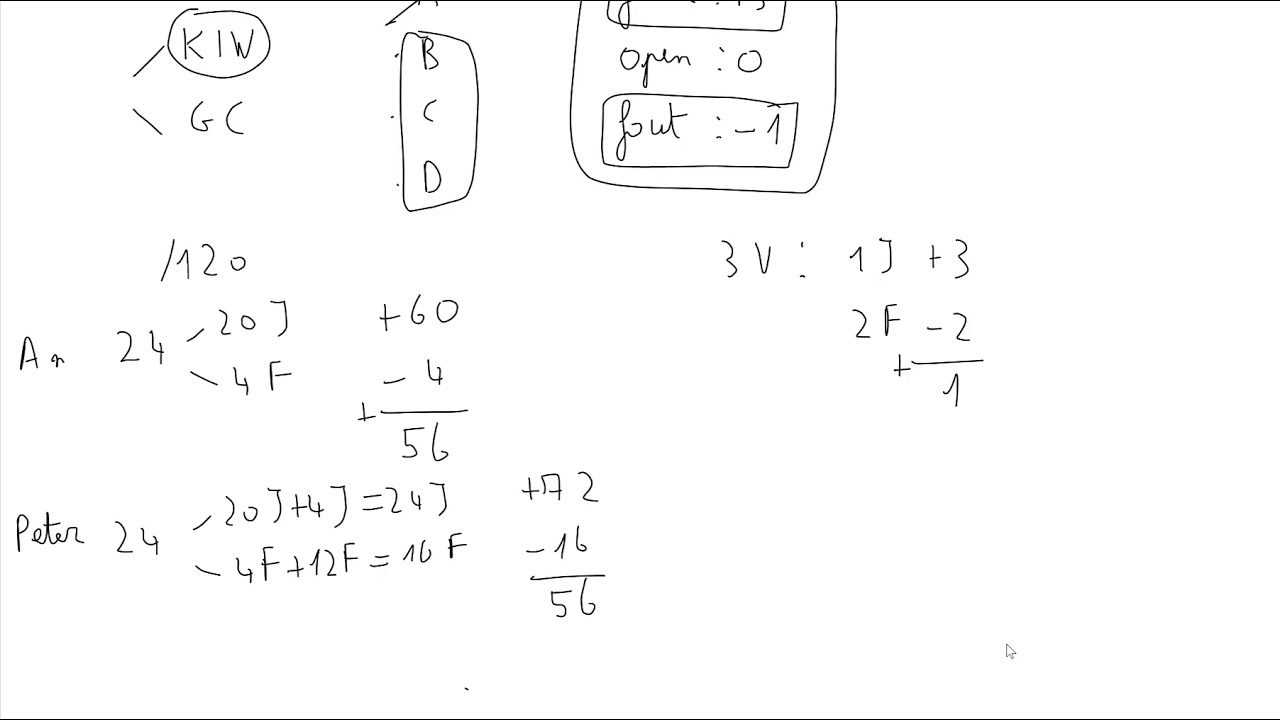 KIW
GC
B
C
D
open : 0
fout : -1
/120
An 24 20J +60
4F - 4
+
56
3V : 1J +3
2F -2
+
1
Peter 24 20J+4J=24J +72
4F+12F=16F -16
56